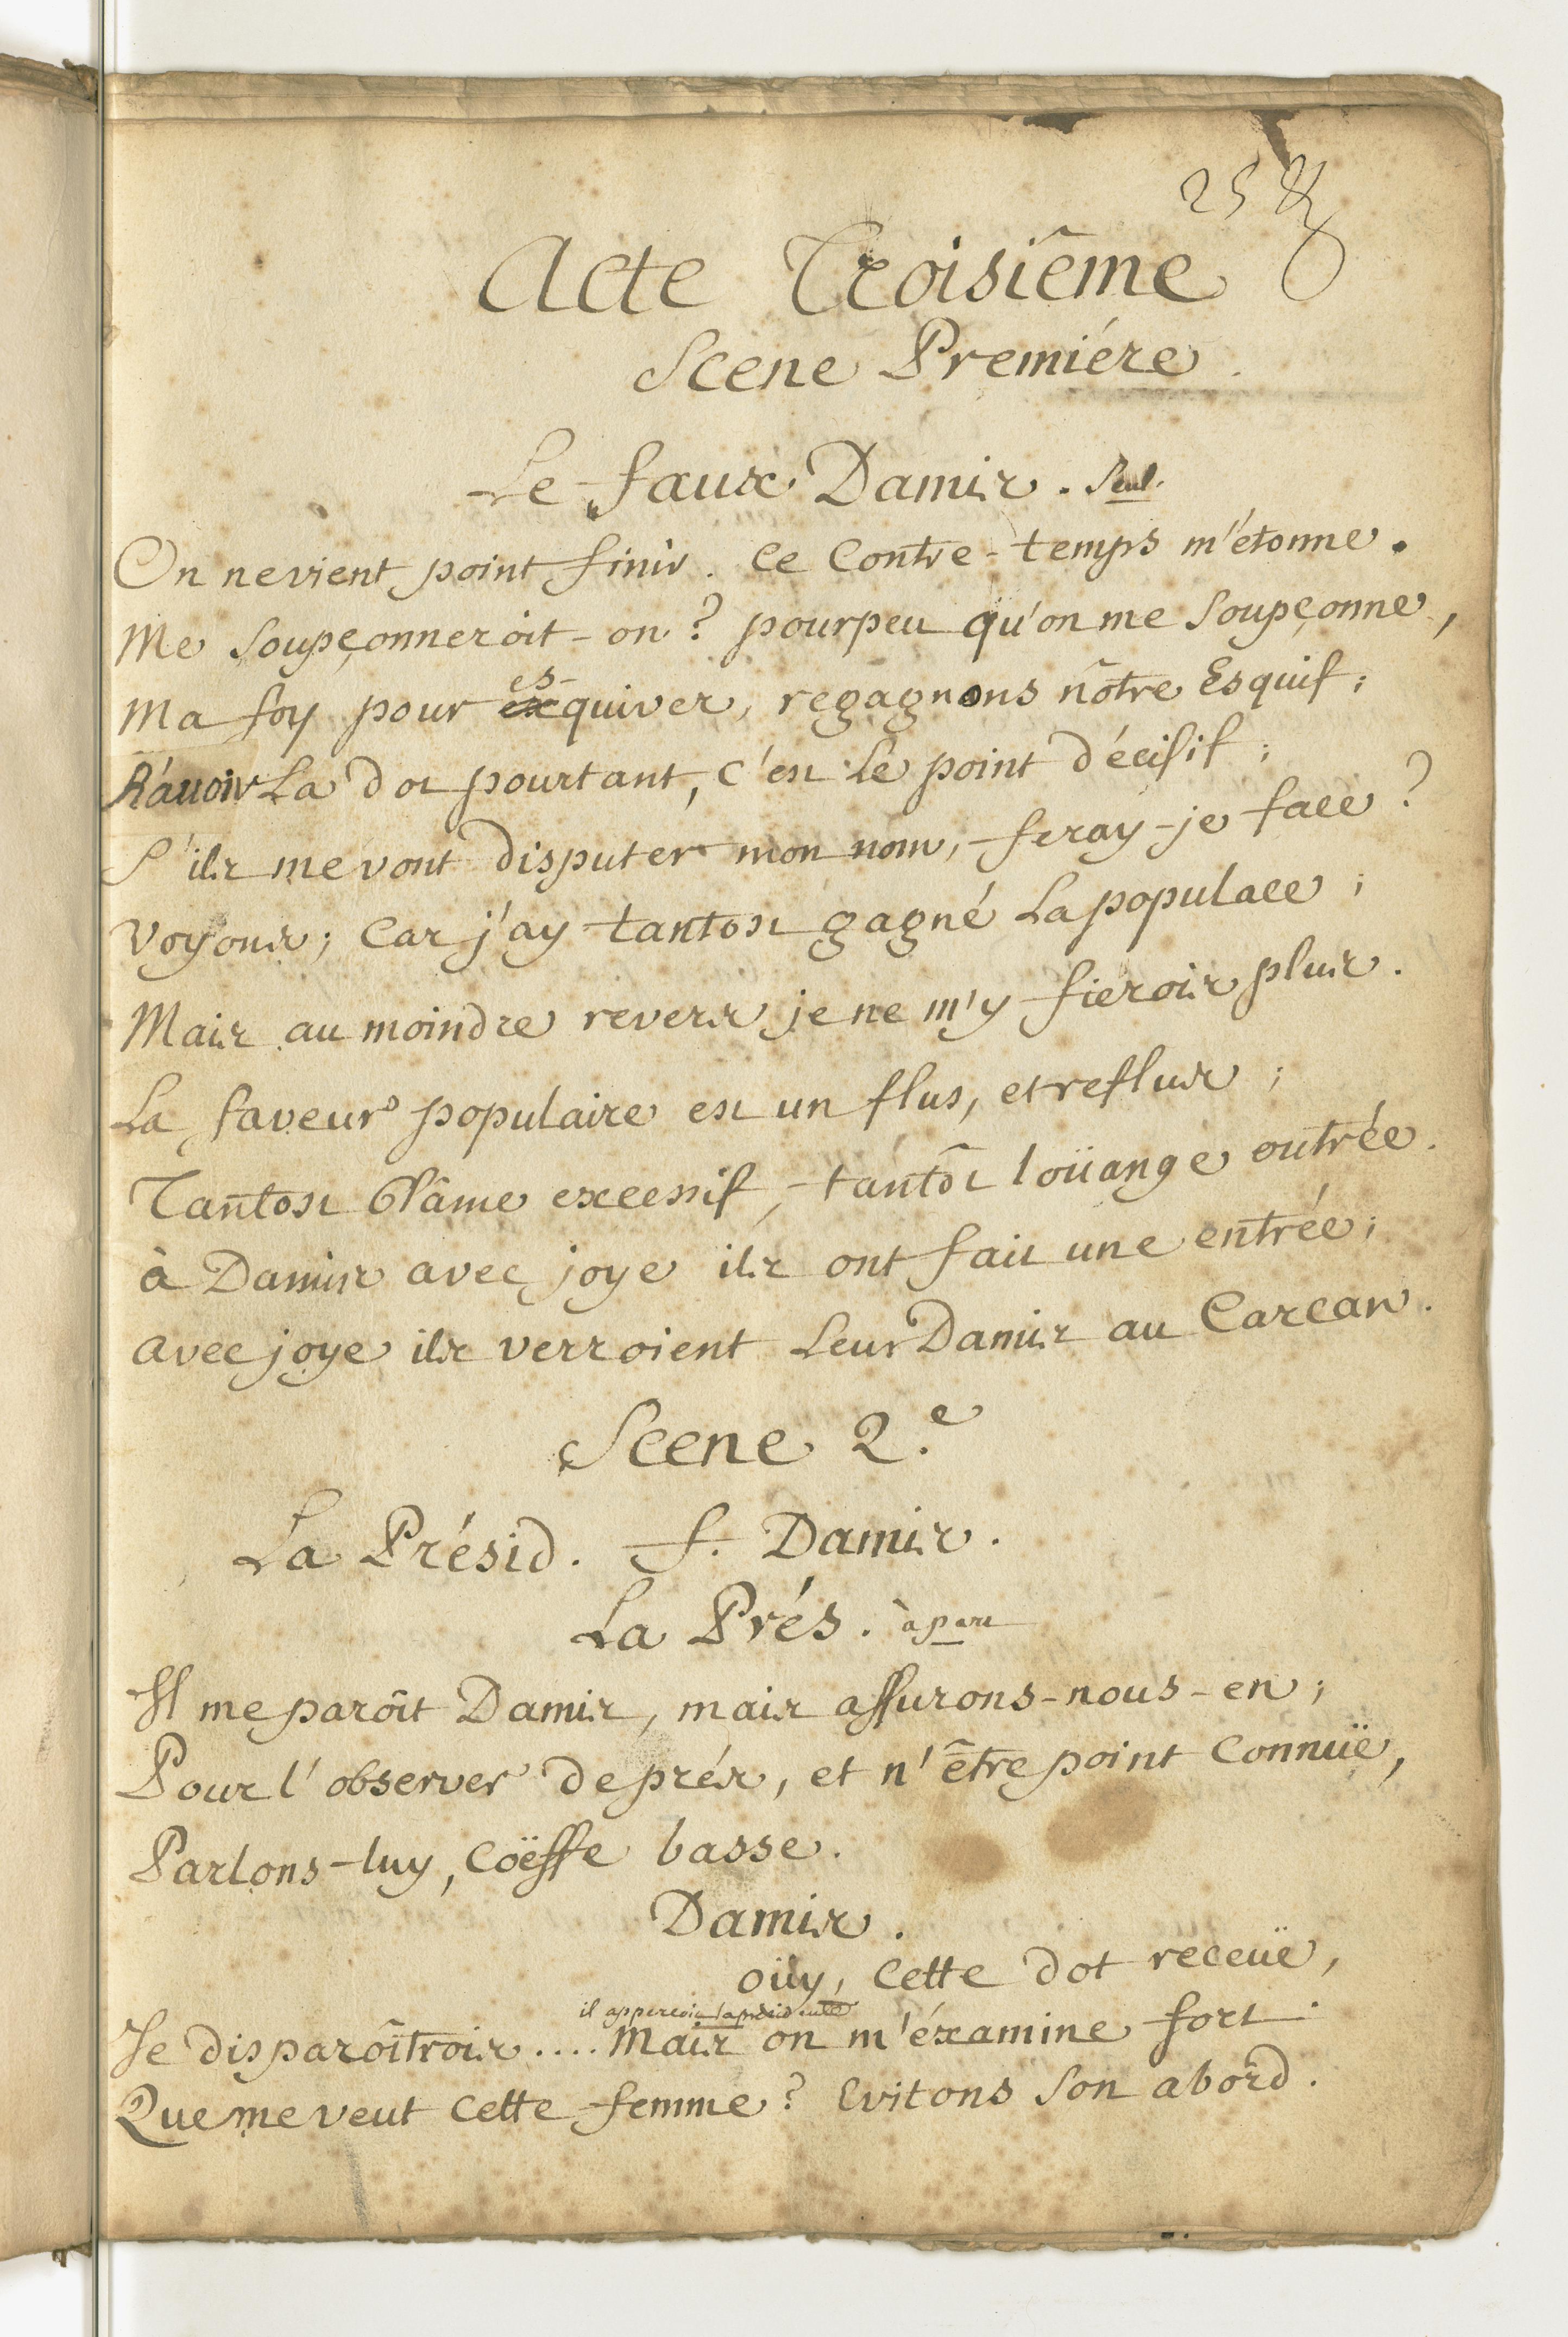 25
Acte Troisiême
Scene Premiére.
Le faux Damis. Seul.
On ne vient point finir. Ce Contre-temps m'étonne.
Me soupçonneroit-on? pour peu qu'on me soupçonne,
Ma foy pour es-quiver, regagnons nôtre Esquif;
R'auoir La dot pourtant, c'est Le point décisif;
S'ils me vont disputer mon nom, feray-je face?
Voyons; Car j'ay tantost gagné La populace;
Mais au moindre revers je ne m'y fierois plus.
La faveur populaire est un flus, et reflus;
Tantost blâme excessif, tantôt loüange outrée.
à Damis avec joye ils ont fait une entrée;
avec joye ils verroient Leur Damis au Carcan.
Scene 2.e
La Présid. f. Damis.
La Prés. à part
Il me parôit Damis, mais assurons-nous-en;
Pour l'observer de prés, et n'être point Connuë,
Parlons-luy, Coëffe basse.
Damis.
oüy, Cette dot receüe,
il apperçoit la présidente
Je disparôitrois.... Mais on m'éxamine fort.
Que me veut Cette femme? Evitons son abord.